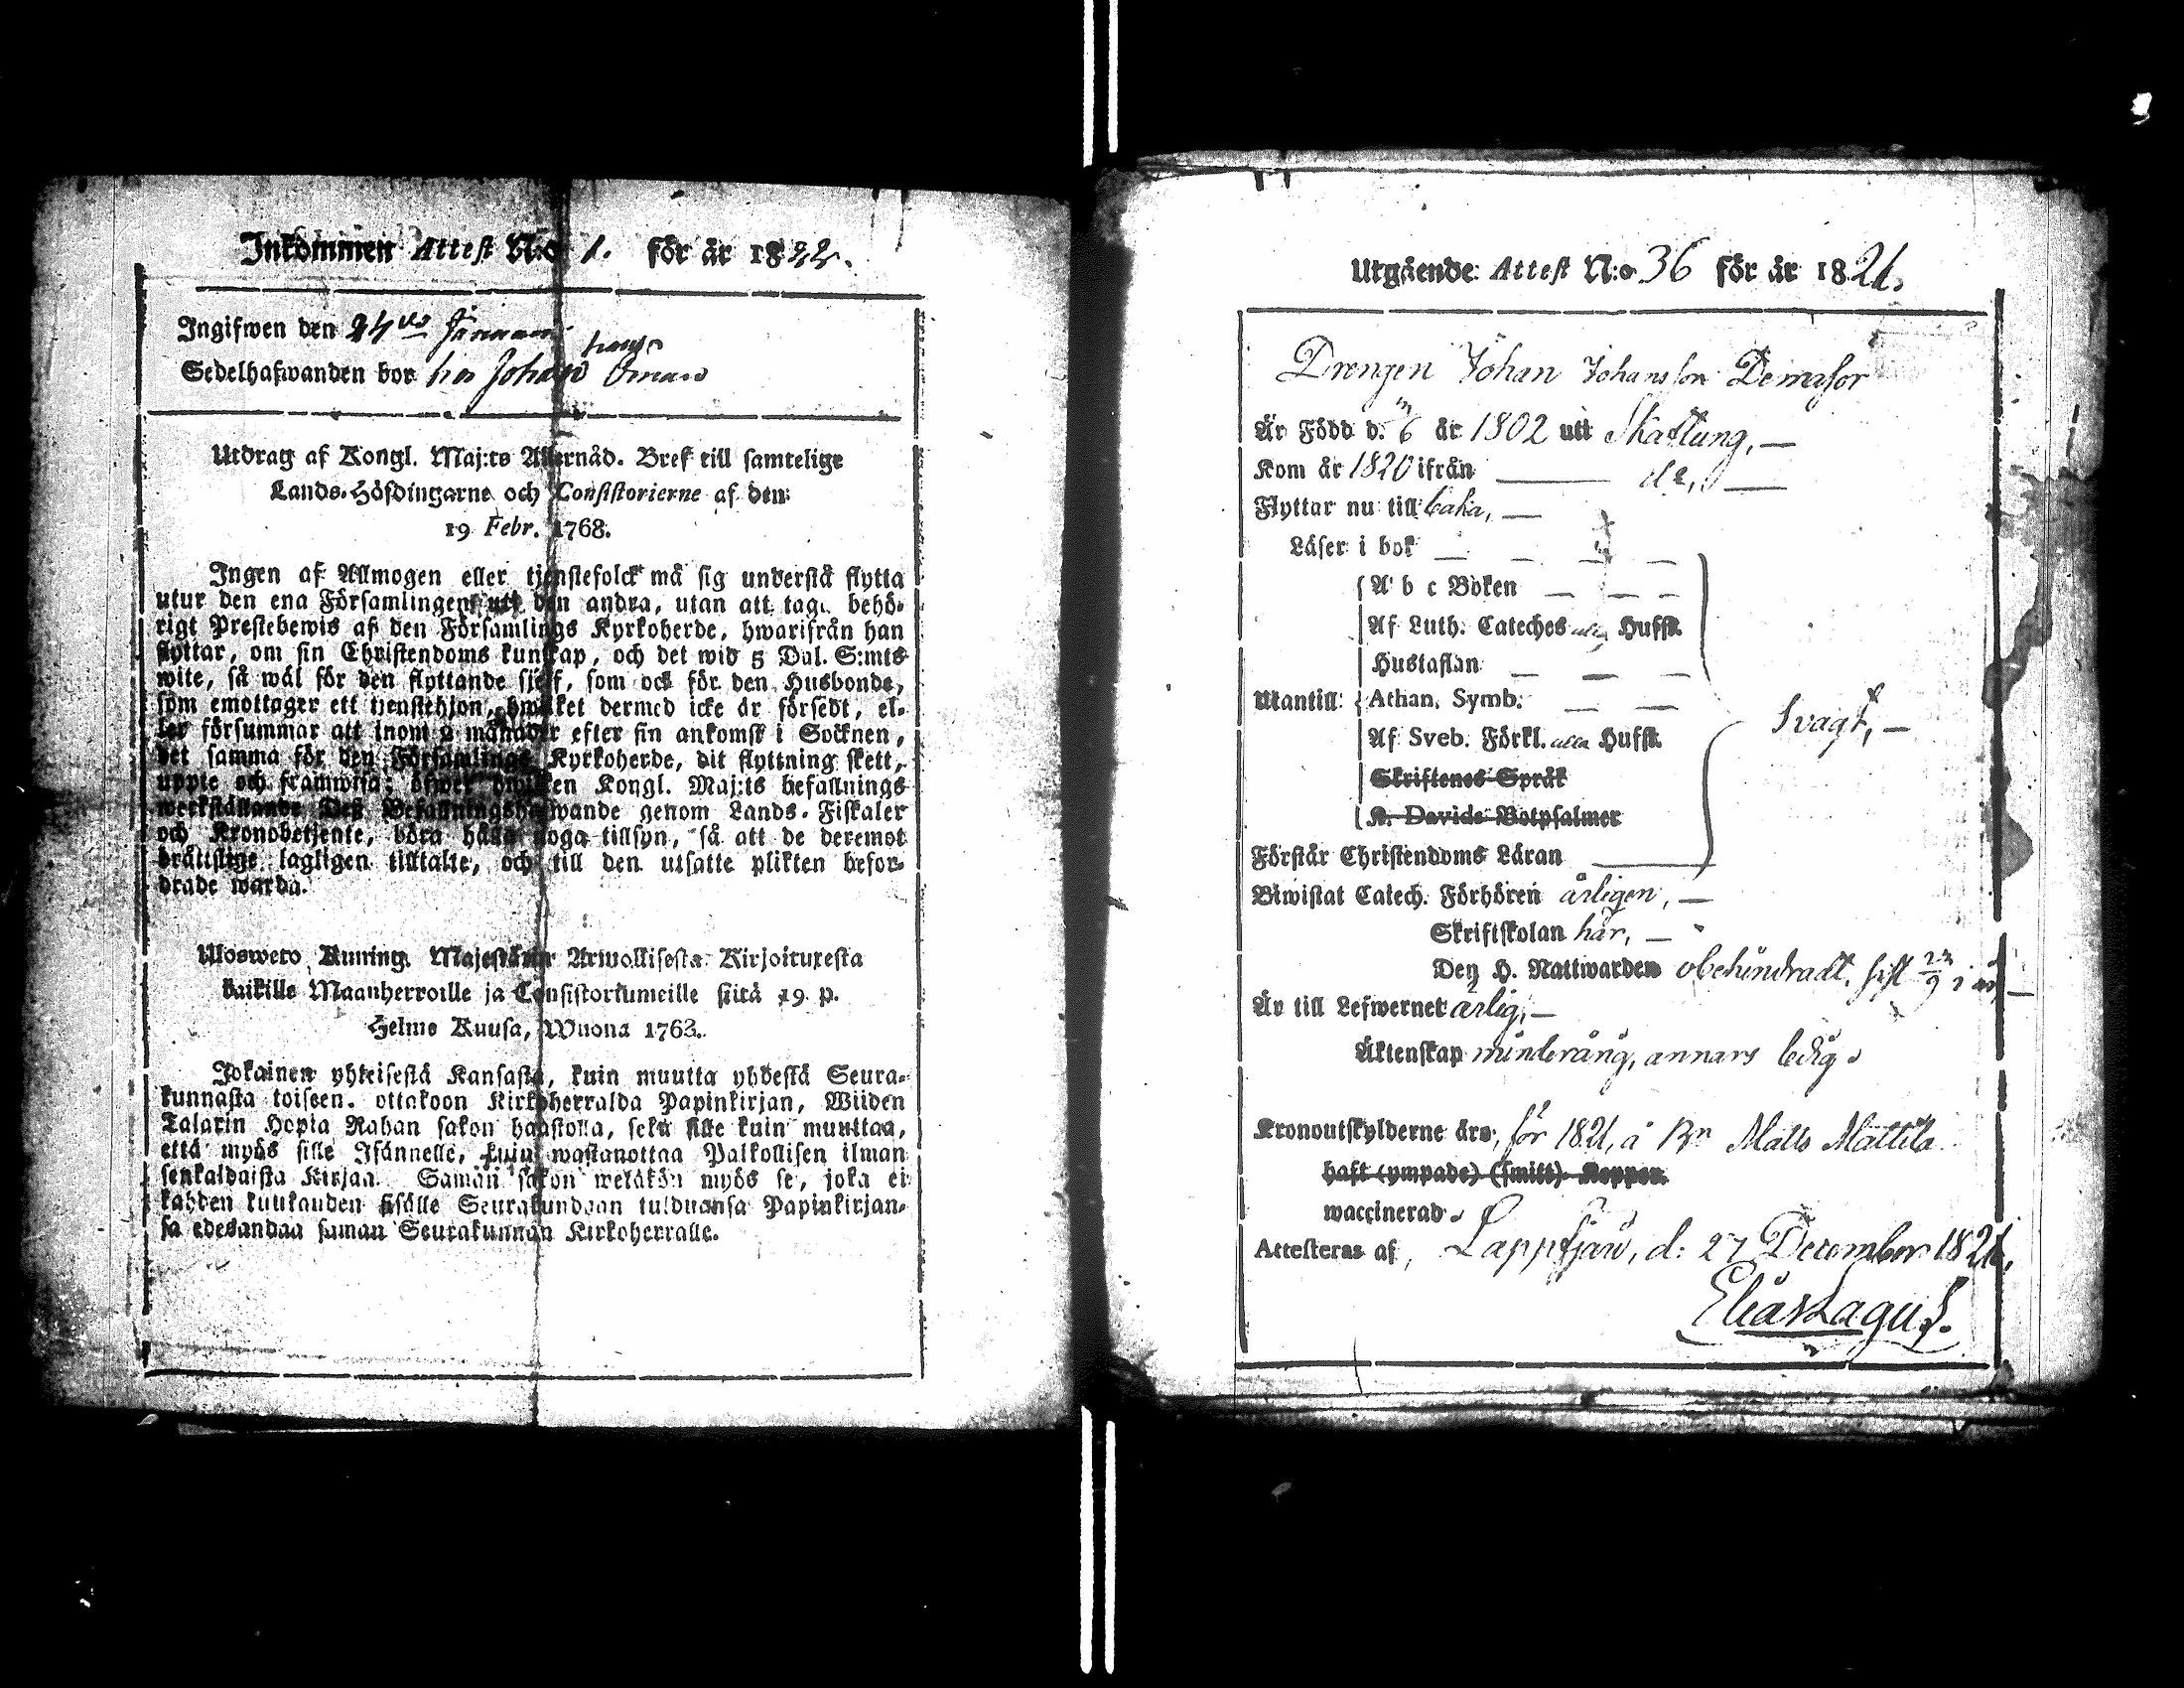 Inkommen Attest N:o 1. för år 1822.
Ingifwen den 24de Januari
Sedelhafwanden bor hos Johan
Utdrag af Kongl. Maj:ts Allernåd. Bref till samtelige
Lands-Höfdingarne och Consistorierne af den
19 Febr. 1768.
Ingen af Allmogen eller tjenstefolck må sig understå flytta
utur den ena Församlingen uti den andra, utan att taga behö-
rigt Prestebewis af den Församlings Kyrkoherde, hwarifrån han
flyttar, om sin Christendoms kunskap, och det wid 5 Dal. S:mts
wite, så wäl för den flyttande sjelf, som ock för den Husbonde,
som emottager ett tjenstehjon, hwilket dermed icke är försedt, el-
ler försummar att inom 2 månader efter sin ankomst i Socknen,
det samma för den Församlings Kyrkoherde, dit flyttning skett,
uppte och framwisa; öfwer hwilken Kongl. Maj:ts befallnings
werkställande Deß Befallningshafwande genom Lands-Fiskaler
och Kronobetjente, böra hålla noga tillsyn, så att de deremot
bråttslige lagligen tilltalte, och till den utsatte plikten befor-
drade warda.
Ulosweto Kuning. Majestätin Armollisesta Kirjoituxesta
kaikille Maanherroille ja Consistoriumeille siitä 19 p.
Helme Kuusa, Wuona 1763.
Jokainen yhteisestä Kansasta, kuin muutta yhdestä Seura-
kunnasta toiseen, ottakoon Kirkoherralda Papinkirjan, Wiiden
Talarin Hopia Rahan sakon haastolla, sekä sille kuin muuttaa,
että myös sille Isännelle, kuin wastanottaa Palkollisen ilman
senkaldaista Kirjaa. Saman sakon wetäkön myös se, joka ei
kahden kuukauden sisälle Seurakundaan tulduansa Papinkirjan-
sa edesandaa saman Seurakunnan Kirkoherralle.
Utgående Attest N:o 36 för år 1821.
Drengen Johan Johansson
Är Född d. 6 år 1802 utt Skaftung, —
Kom år 1820 ifrån — do, —
Flyttar nu till baka, —
Läser i bok — — — —
A b c Boken — — —
Af Luth. Cateches alla Hufst.
Hustaflan — — —
Utantill: Athan. Symb. — —
Svagt, —
Af Sveb. Förkl. alla Hufst.
Skriftenes Språk
K. Davids Botpsalmer
Förstår Christendoms Läran
Biwistat Catech. Förhören årligen, —
Skriftskolan här, —
Den H. Nattwarden obehindradt, sist 23/9 i år, —
Är till Lefwernet ärlig, —
Äktenskap minderårig, annars ledig.
Kronoutskylderne äro, för 1821, å Bn Matts Mattila
haft (ympade) (smitt) Koppor.
waccinerad.
Attesteras af, Lappfjärd, d: 27 December 1821,
Elias Lagus.